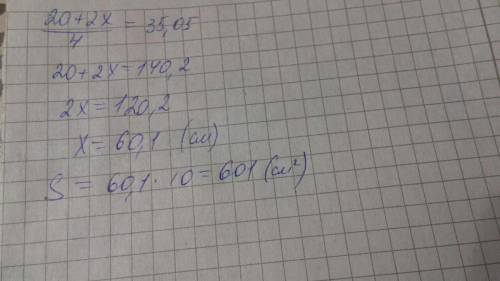 20+2x/4 = 35,05
20+2x=140,2
2x=120,2
x=60,1 (см)
S = 60,1·10=601 (см²)